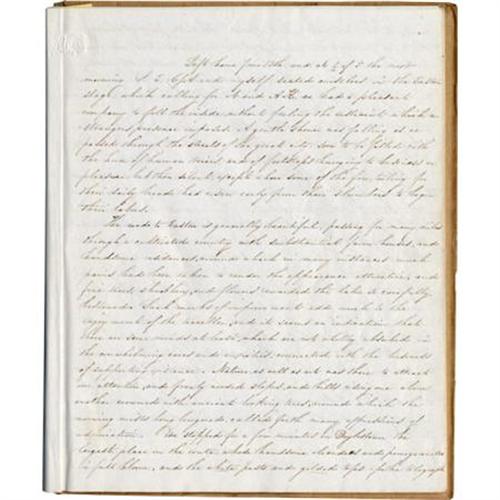 Left home June 13th and at ½ of 5 the next
morning S. T. and myself seated ourselves in the Easton
stage, which calling for and A.H. we had a pleasant
company to fill the inside, without feeling the restraint which a
strangers presence imposes. A gentle shower was falling as we
passed through the streets of the great city, soon to be filled with
the hum of human voices and of footsteps hurrying to business or
pleasure, but then silent, except where some of the few toiling for
their daily bread had risen early from their slumbers to begin
their labors.
The road to Easton is generally beautiful, passing for many miles
through a cultivated country with substantial farm houses, and
handsome residences, around which in many instances much
pains had been taken to render the appearance attractive, and
fine trees, shrubbery, and flowers rewarded the labor so carefully
bestowed. Such marks of refinement adds much to the
enjoyment of the traveller, and it seems an indication that
there are some minds at least, which are not wholly absorbed in
the overwhelming cares and anxieties, connected with the business
of supporting existence. Nature as well as art was there to attract
our attention, and finely wooded slopes, and hills rising one above
another crowned with ancient looking trees, around which the
morning mists long lingered, called forth many expressions of
admiration. We stopped for a few minutes in Doylestown the
largest place in the route, where handsome oleanders and pomegranates
in full bloom, and the white posts and gilded tops of the telegraph